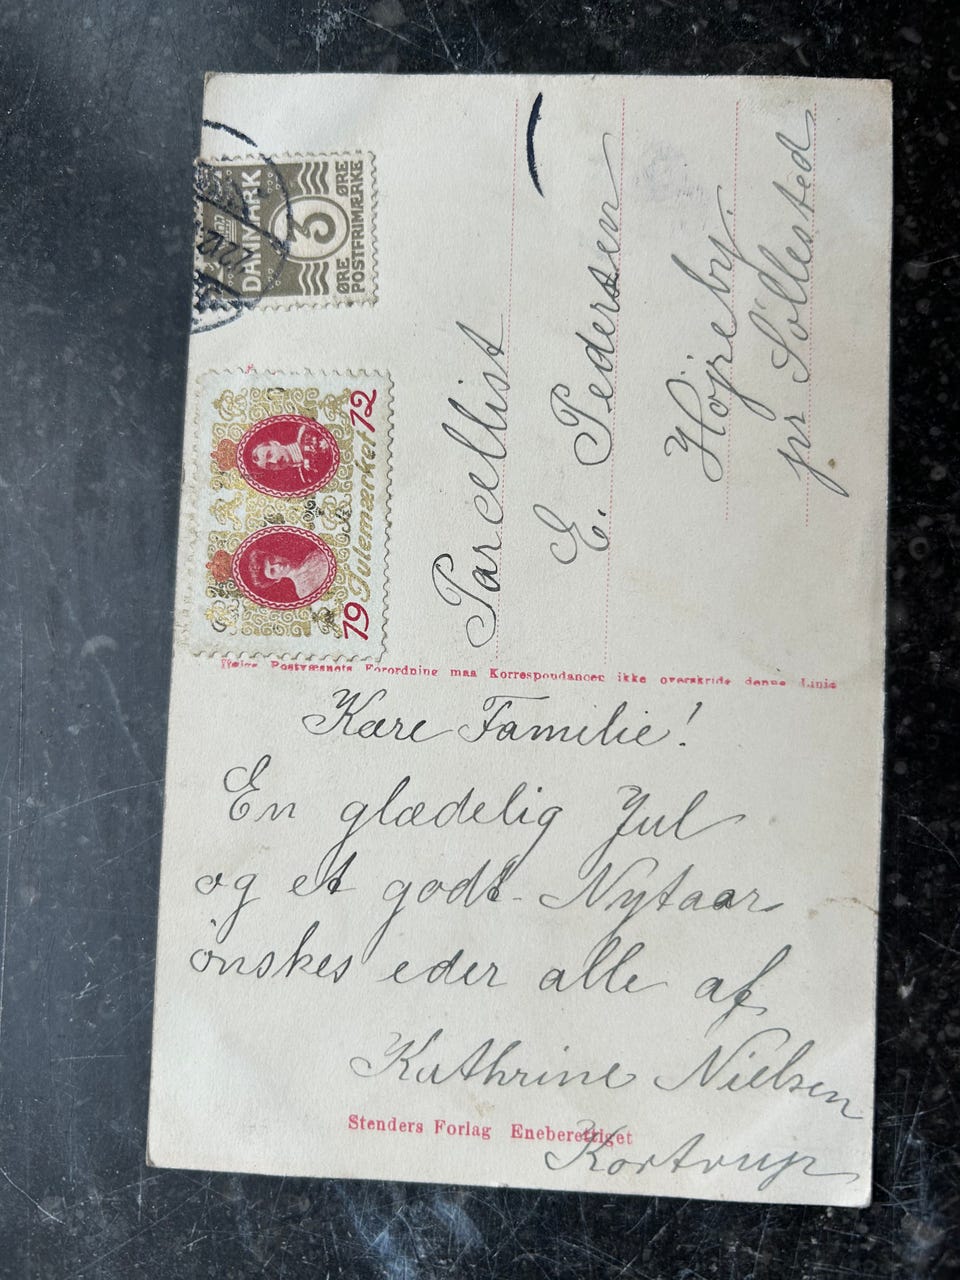 DANMARK
3
ØRE ØRE
POSTFRIMÆRKE
1912
Julemærket
Parcellist
E. Pedersen
Höjreby.
pr Söllested
Ifølge Postvæsnets Forordning maa Korrespondancen ikke overskride denne Linie
Kære Familie!
En glædelig Jul
og et godt Nytaar
önskes eder alle af
Kathrine Nielsen
Stenders Forlag Eneberettiget
Kortrup